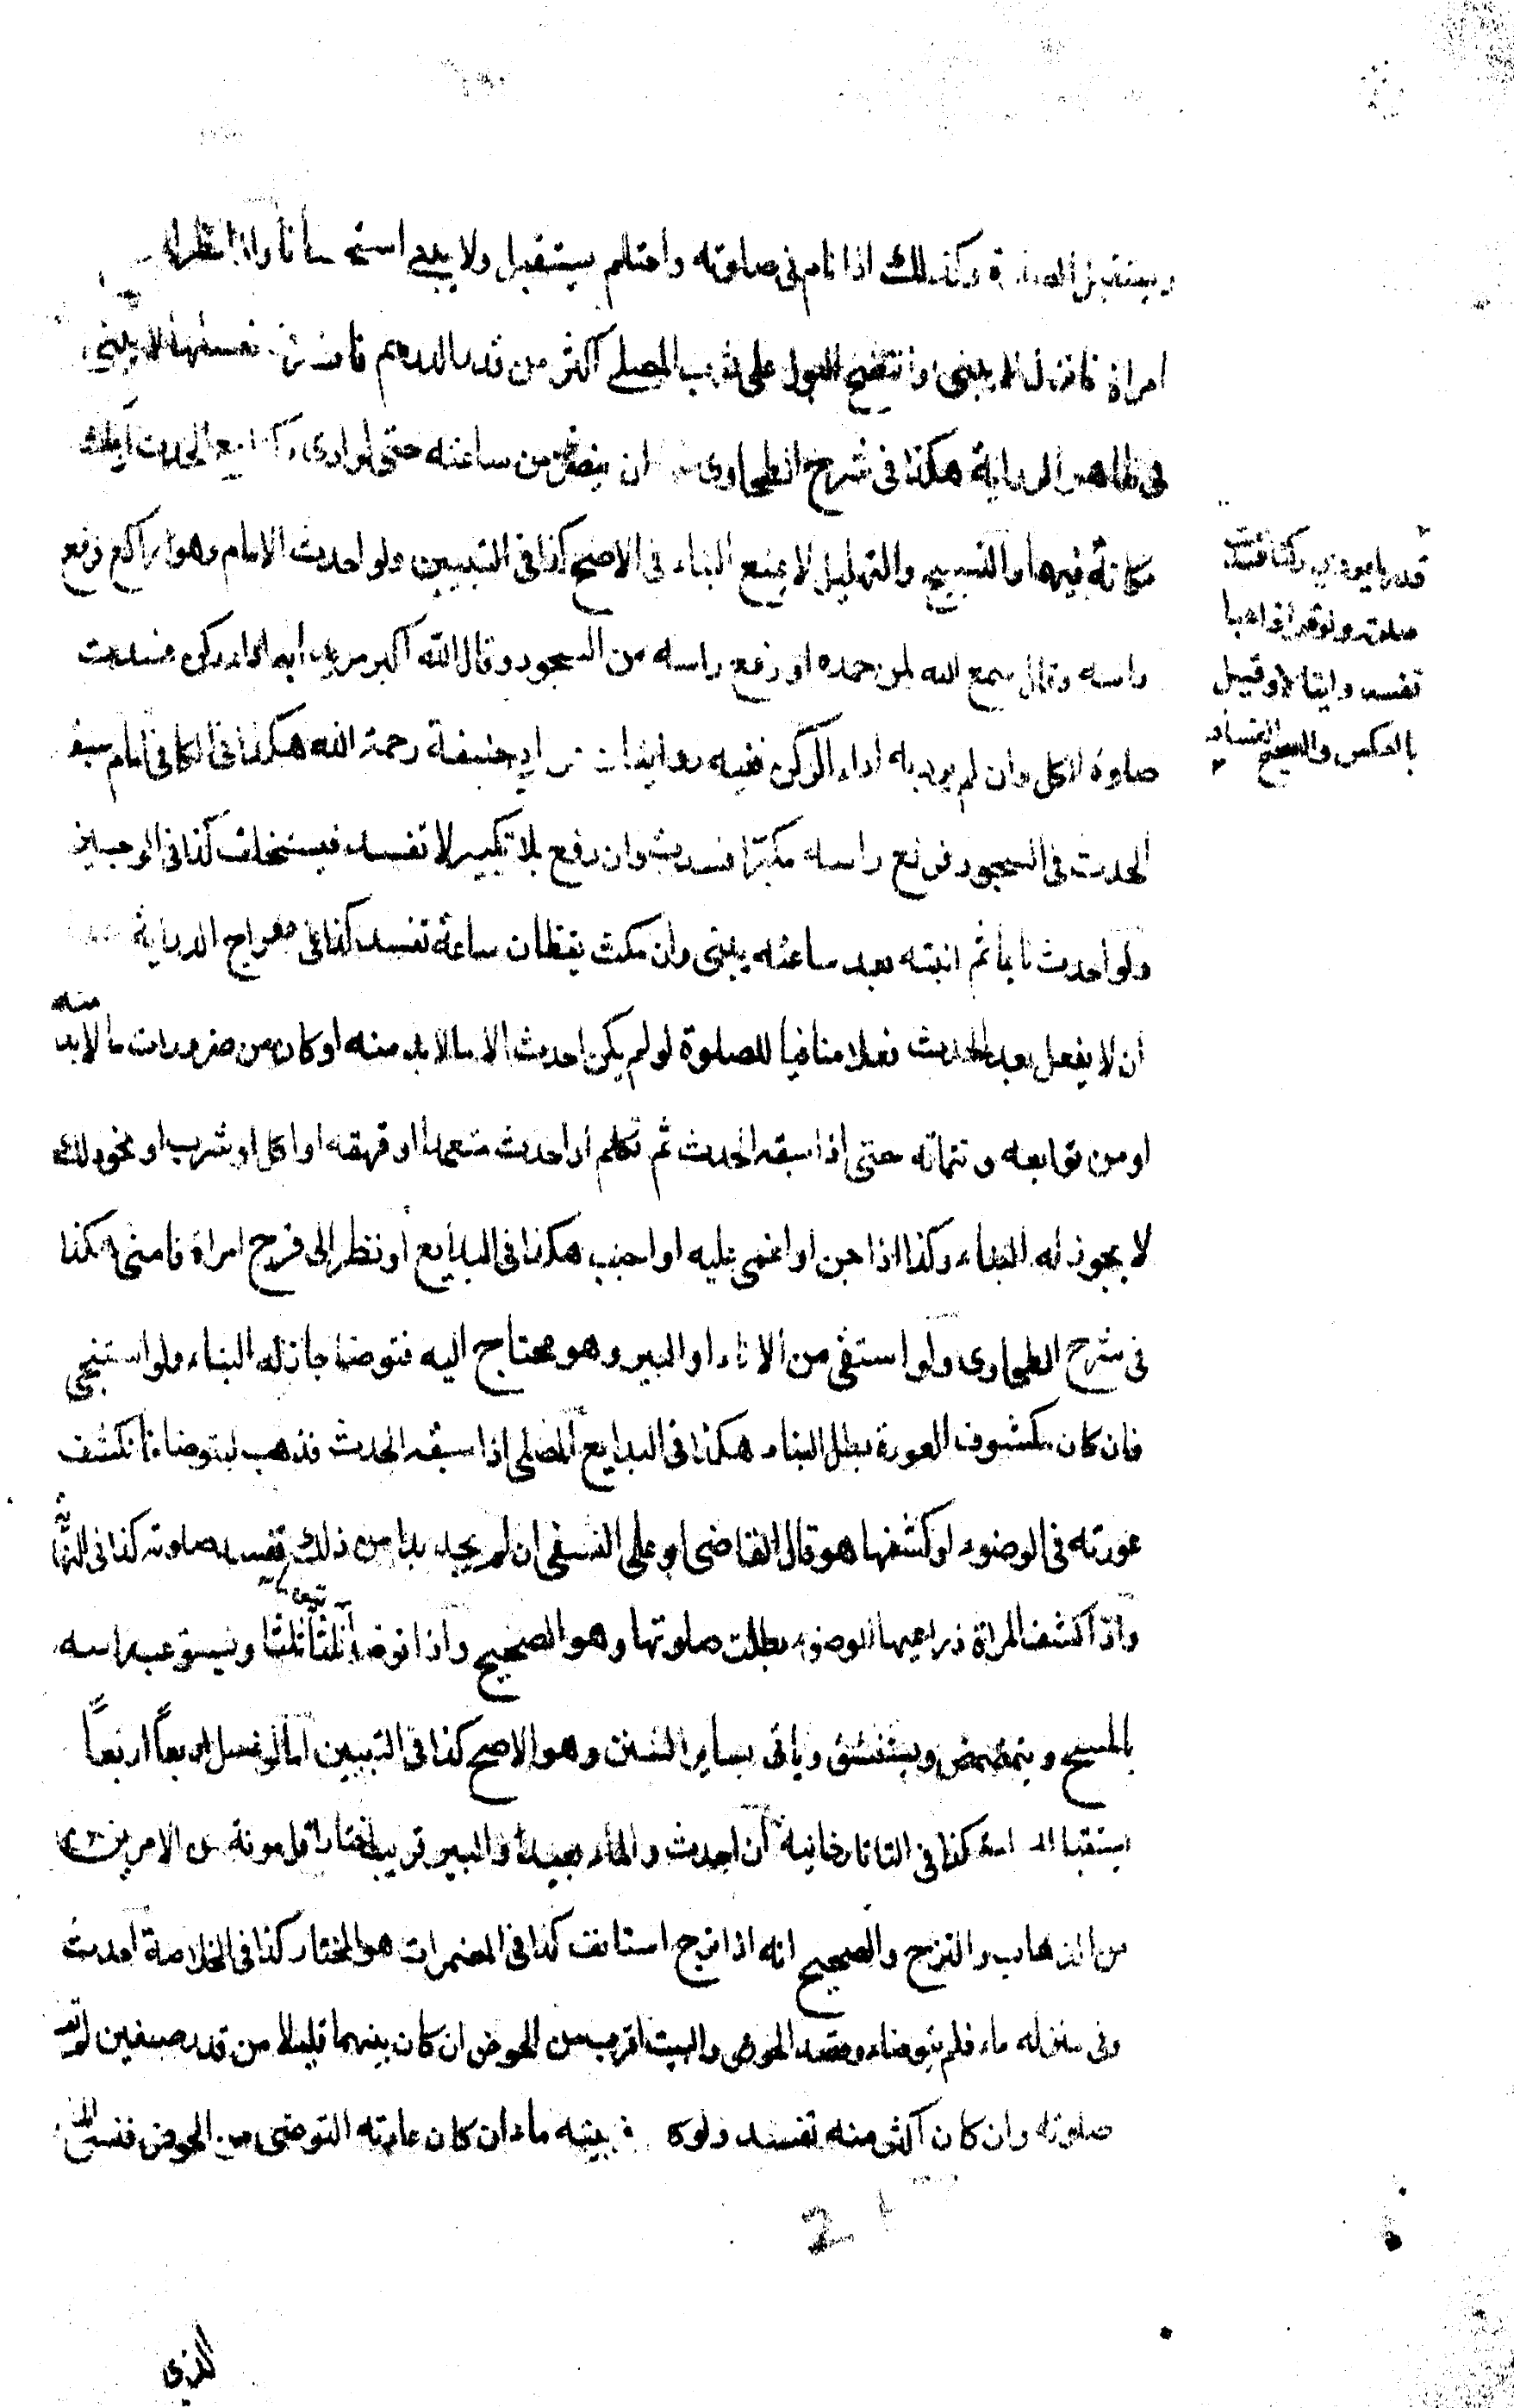 ويستقبل الصلوة وكذلك اذا نام فى صلوته واحتلم يستقبل ولا يبنى استحسانا واذا نظر الى
امراة فانزل لا يبنى وانتضح البول على ثوب المصلى اكثر من قدر الدرهم فانصرف فغسلها لا يبنى
فى ظاهر الرواية هكذا فى شرح الطحاوى ان ينصرف من ساعته حتى لو ادى ركنا مع الحدث او مكث
مكانه فيها والتسبيح والتهليل لا يمنع البناء فى الاصح كذا فى التبيين ولو احدث الامام وهو راكع فرفع
راسه وقال سمع الله لمن حمده او رفع راسه من السجود وقال الله اكبر مريدا به اداء ركن فسدت
صلوة الكل وان لم يرد به اداء الركن ففيه روايتان عن ابى حنيفة رحمة الله هكذا فى الكافى امام سبقه
الحدث فى السجود فرفع راسه مكبرا فسدت وان رفع بلا تكبير لا تفسد فيستخلف كذا فى الوجيز
ولو احدث نايما ثم انتبه بعد ساعته يبنى وان مكث يقظان ساعة تفسد كذا فى معراج الدراية
ان لا يفعل بعد الحدث فعلا منافيا للصلوة لو لم يكن احدث الا ما لا بد منه او كان من ضرورات ما لا بد منه
او من توابعه وتتماته حتى اذا سبقه الحدث ثم تكلم او احدث متعمدا او قهقه او اكل او شرب او نحو ذلك
لا يجوز له البناء وكذا اذا جن او اغمى عليه او اجنب هكذا فى البدايع او نظر الى فرج امراة فامنى هكذا
فى شرح الطحاوى ولو استقى من الاناء او البير وهو محتاج اليه فتوضا جاز له البناء ولو استنجى
فان كان مكشوف العورة بطل البناء هكذا فى البدايع المصلى اذا سبقه الحدث فذهب ليتوضاء فانكشف
عورته فى الوضوء او كشفها هو قال القاضى ابو على النسفى ان لم يجد بدا من ذلك لم تفسد صلوته كذا فى النهاية
واذا كشف المراة ذراعيها للوضوء بطلت صلوتها وهو الصحيح واذا توضا يتوضا ثلثا ثلثا ويستوعب راسه
بالمسح ويتمضمض ويستنشق وياتى بساير السنن وهو الاصح كذا فى التبيين اما لو غسل اربعا اربعا
يستقبل الصلوة كذا فى التاتارخانية ان احدث والماء بعيد والبير قريب يختار اقل مونة من الامرين
من الذهاب والنزح والصحيح انه اذا نزح استانف كذا فى المضمرات هو المختار كذا فى الخلاصة احدث
وفى منزله ماء فلم يتوضاء وقصد الحوض والبيت اقرب من الحوض ان كان بينهما قليلا من قدر صفين لم تفسد
صلوته وان كان اكثر منه تفسد ولو كان فى بيته ماء ان كان عادته التوضى من الحوض فنسى الماء
الذى
قدر ما يودى ركنا فسدت
صلوته ولو قرا ذاهبا
تفسد وايبا لا وقيل
بالعكس والصحيح الفساد
2